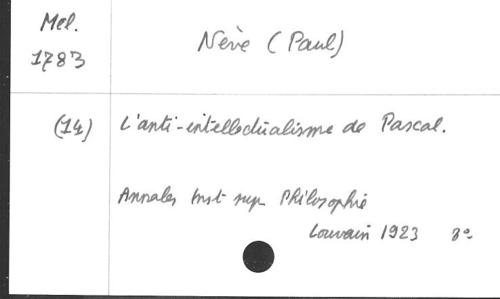 Mel.
1783
Nève (Paul)
(14) L'anti-intellectualisme de Pascal.
Annales Inst sup Philosophie
Louvain 1923 8º